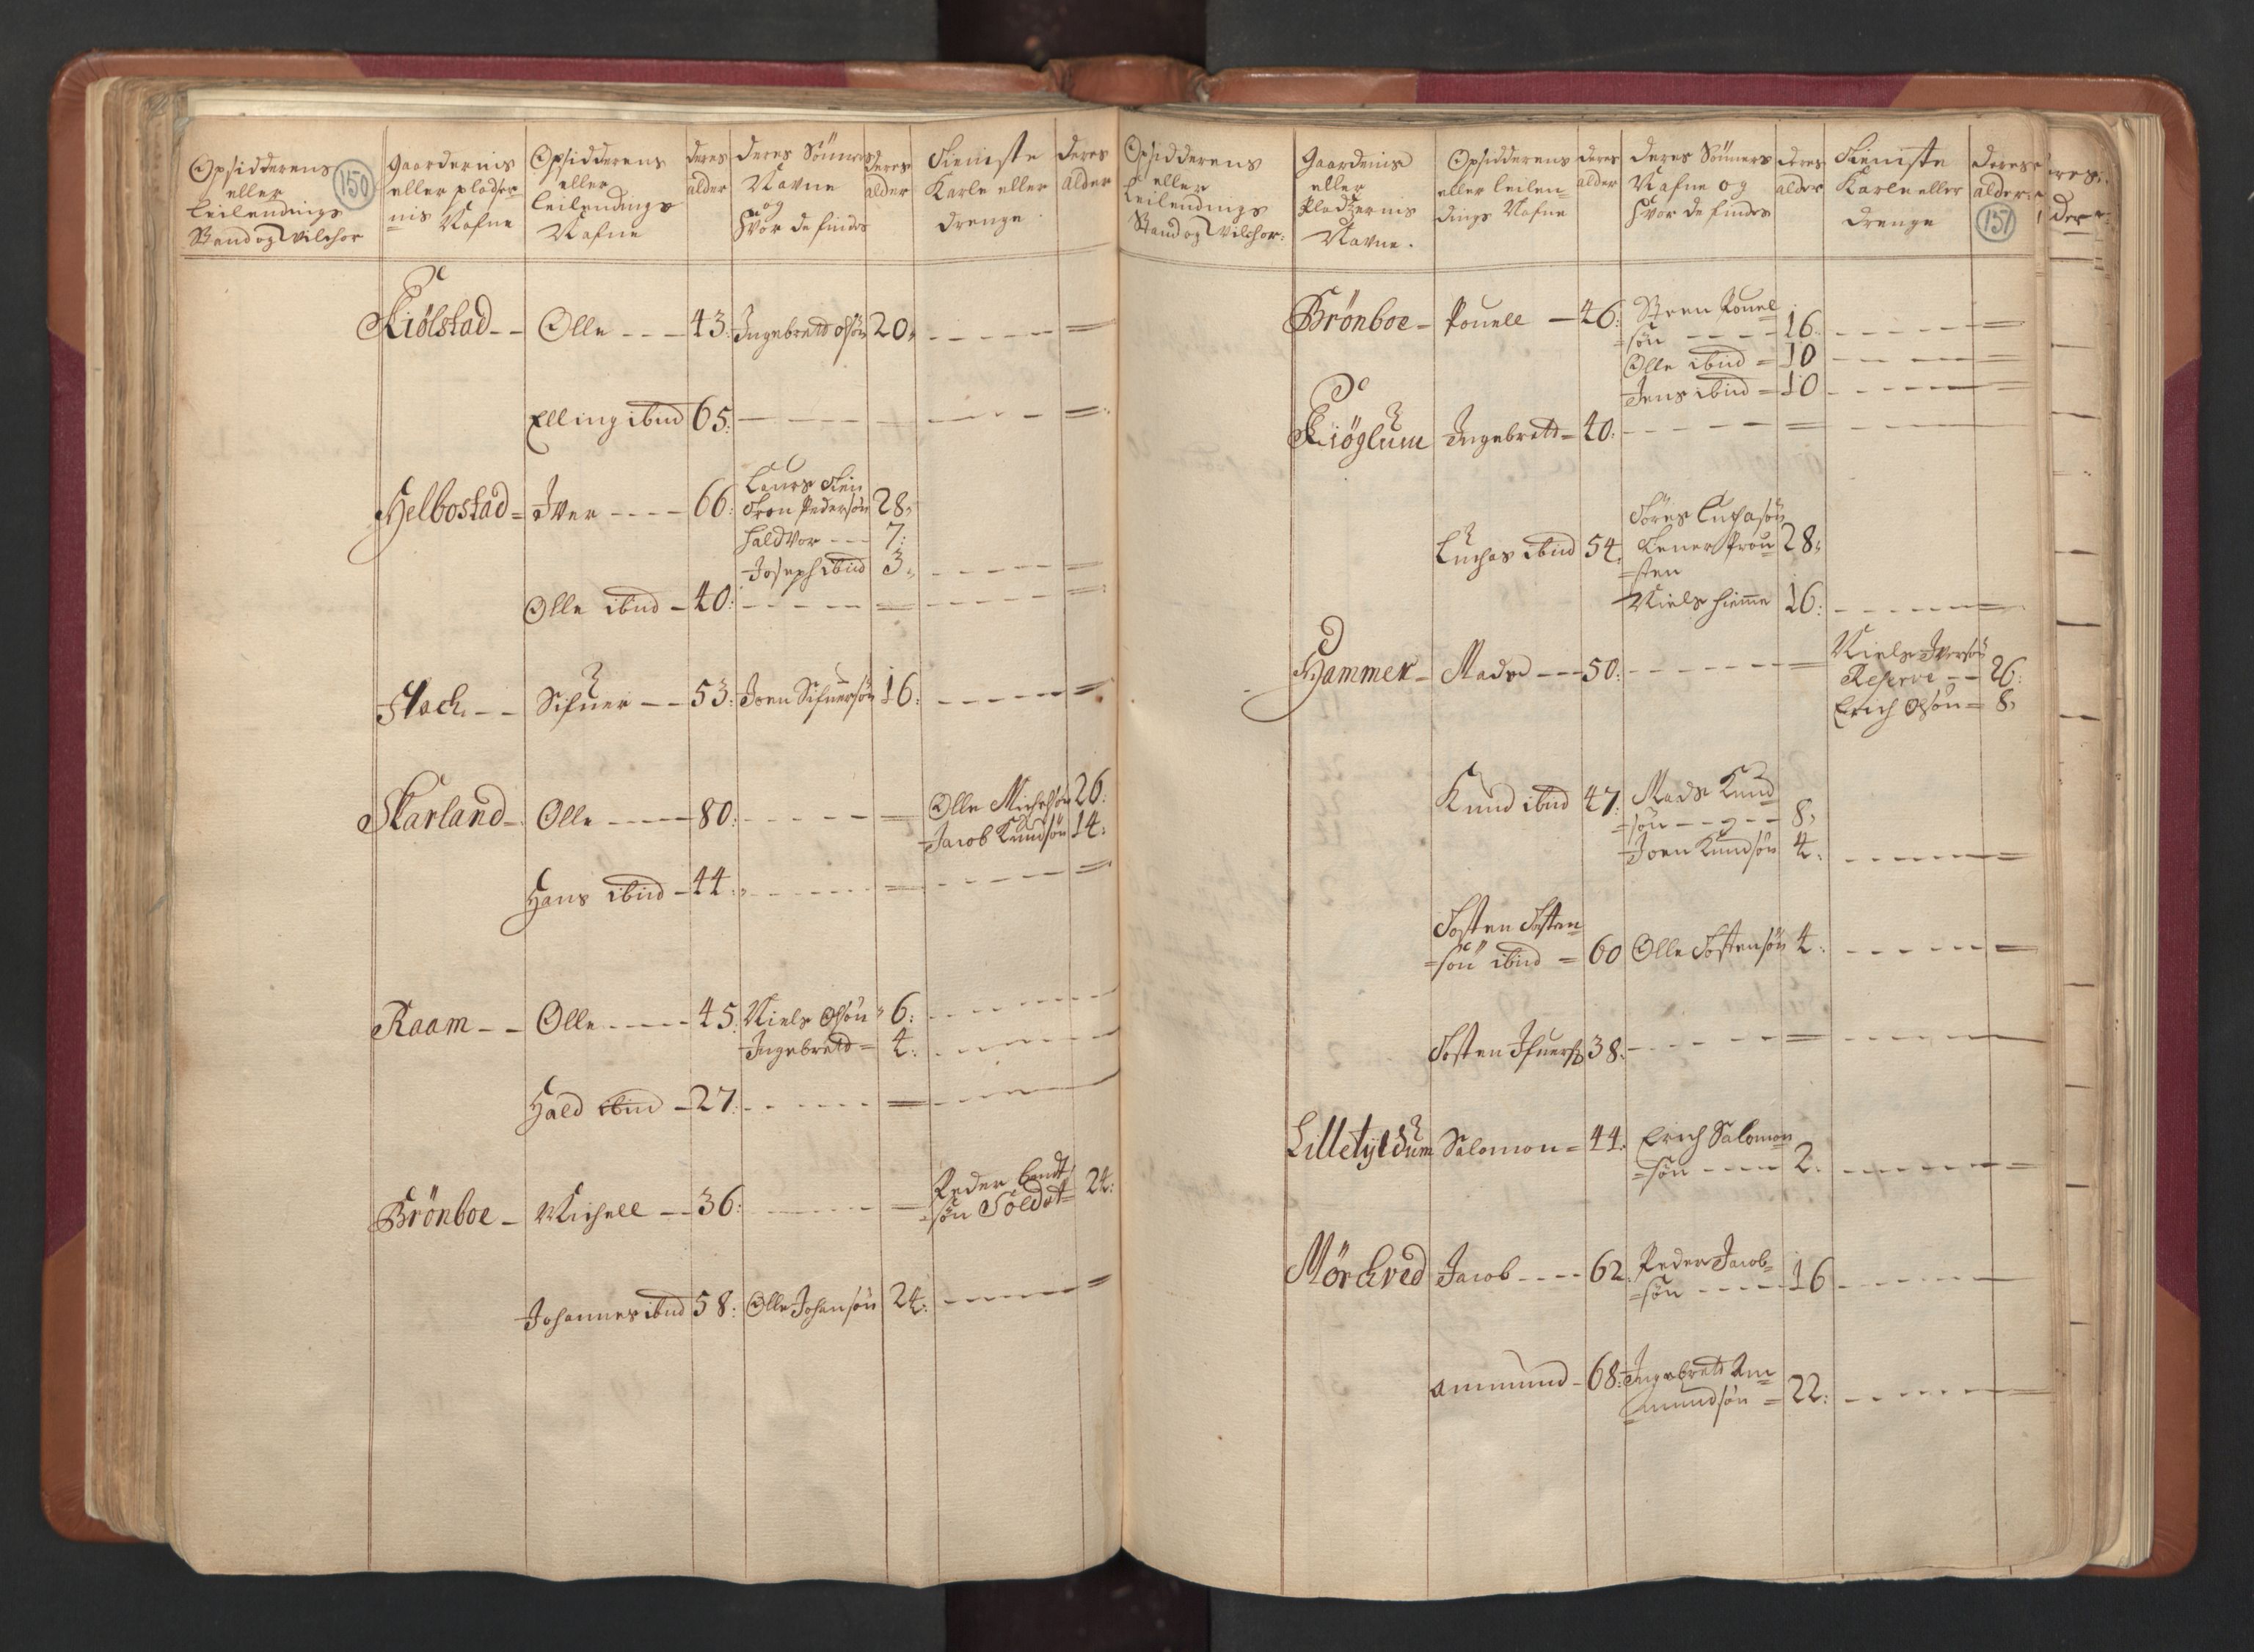 Opsidderens
eller
Leilendings
Stand og Vilchor
150
Gaardernis
eller pladser=
nis Nafne
Opsidderens
eller
Leilendings
Nafne
deres
alder
deres Sönners
Navne
og
Hvor de findes
deres
alder
Tieniste
Karle eller
drenge
deres
alder
Kiölstad -- Olle --- 43: Ingebret Olsön 20: ----- =
Elling ibid 65: ---- ---- =
Helbostad = Iver ---- 66: Laurs Tien
Tron Pedersön 28:
Haldvor --- 7:
Joseph ibid 3: ----- =
Olle ibid - 40: ----- = ----- =
Flach -- Sifuer -- 53: Joen Sifuersön 16: ----- =
Skarland - Olle ---- 80: ----- = Olle Michelsön 26:
Jacob Knudsön 14:
Hans ibid - 44: ----- = ----- =
Raam -- Olle ---- 45: Niels Olsön 6: -----
Ingebret = 4: -----
Hald ibid - 27: ----- = -----
Brönboe - Michell -- 36: ----- = Peder Bendt
=sön Soldat = 24:
Johannes ibid 58: Olle Johansön 24: ----- =
Opsidderens
eller
Leilendings
Stand og Vilchor:
Gaardenis
eller
Pladzernis
Navne.
Opsidderens
eller leilen=
dings Nafne
deres
alder
deres Sönners
Nafne og
Hvor de findes
deres
alder
Tieniste
Karle eller
drenge
deres
alder
151
Brönboe - Pouell - 46: Steen Pouel
=sön ---- 16: ----- =
Olle ibid = 10 ----- =
Jens ibid = 10 ----- =
Kiöglum Ingebret = 40: ----- = -----
Luchas ibid 54: Töres Luchasön
tener Prou= 28:
=sten
Niels hieme 16: ----- =
Hammer - Mads --- 50: ----- = Niels Iversön
Reserve -- 26:
Erich Olsön = 8:
Knud ibid 47: Mads Knud
=sön ---- 8:
Joen Knudsön 4: ----- =
Tosten Tosten=
=sön ibid = 60 Olle Tostensön 4: ---- =
Tosten Ifuers: 38: ----- = -----
Lilletyldum Salomon = 44: Erich Salomon
=sön ---- 2: ----- =
Mörckved Jacob ---- 62: Peder Jacob=
=sön ---- 16 -----
Ammund - 68: Ingebret Am
=mundsön = 22: -----